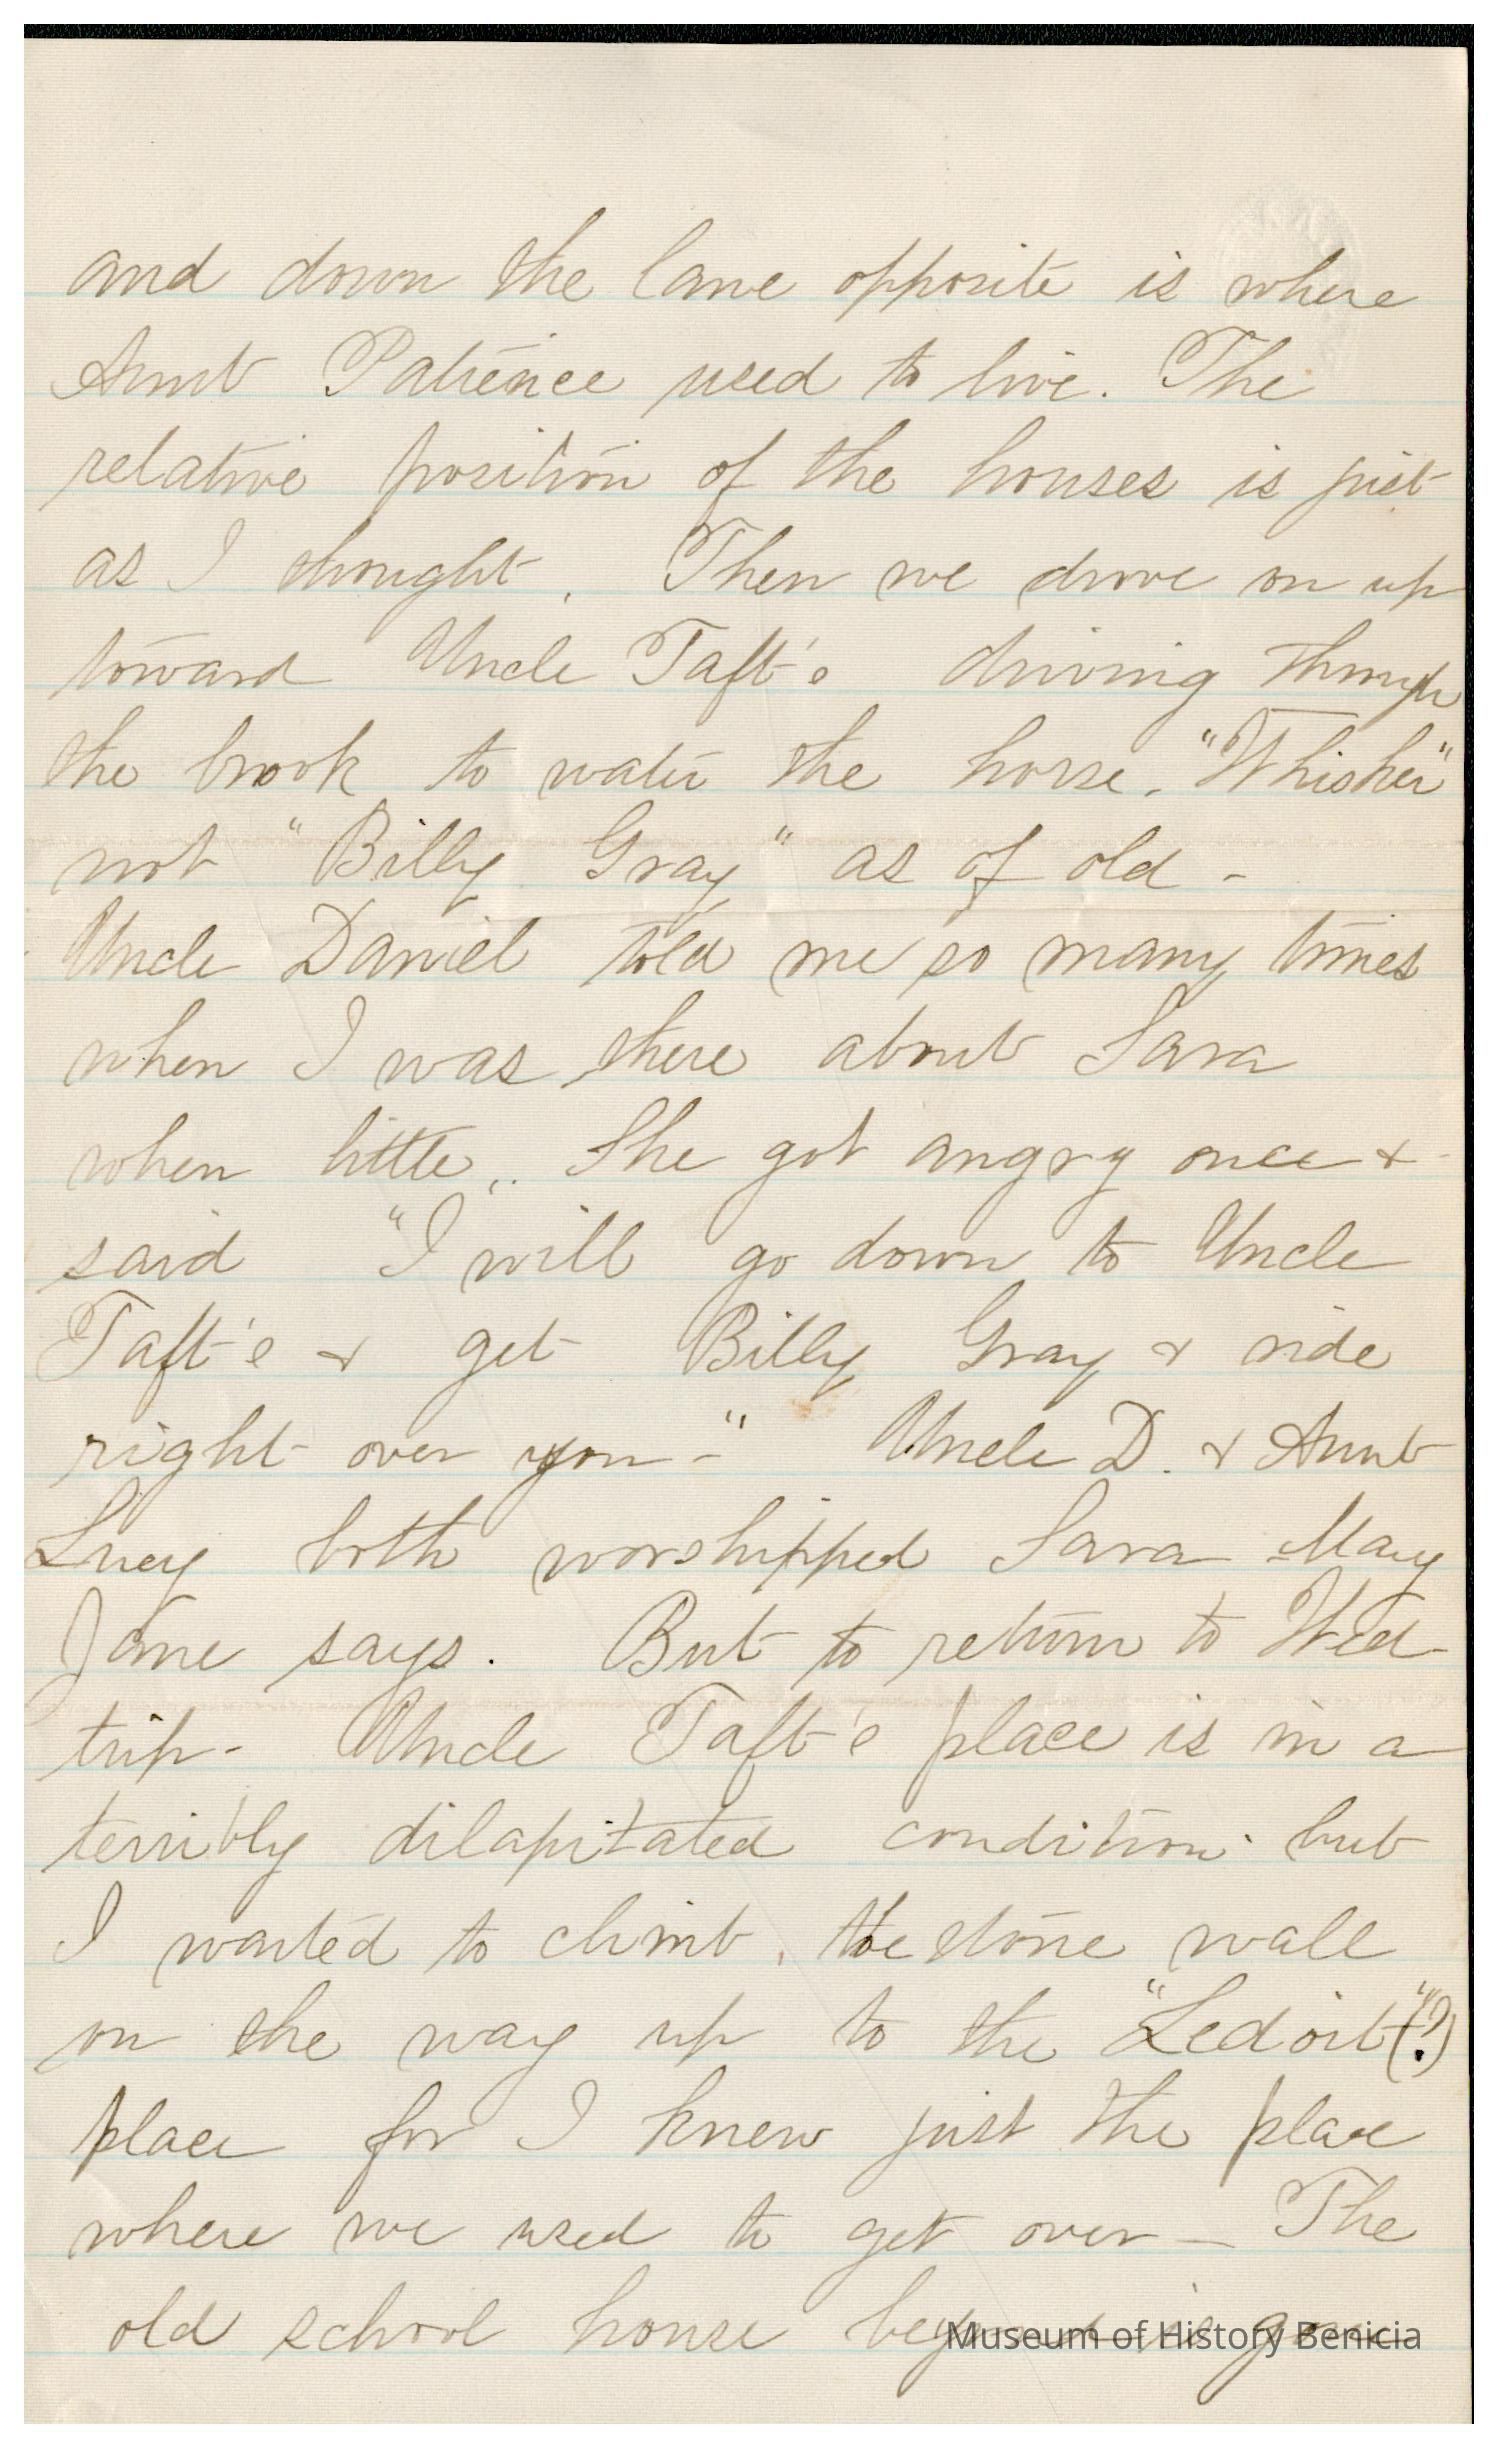 and down the lane opposite is where
Aunt Patience used to live. The
relative position of the houses is just
as I thought. Then we drove on up
toward Uncle Taft's driving through
the brook to water the horse. "Whisker"
not "Billy Gray" as of old -
Uncle Daniel told me so many times
when I was there about Sara
when little. She got angry once &
said "I will go down to Uncle
Taft's & get Billy Gray & ride
right over you -" Uncle D. & Aunt
Lucy both worshipped Sara Mary
Jane says. But to return to Wed
trip - Uncle Taft's place is in a
terribly dilapitated condition but
I wanted to climb the stone wall
on the way up to the "Ledoit"(?)
place for I knew just the place
where we used to get over - The
old school house beyond is gone
Museum of History Benicia